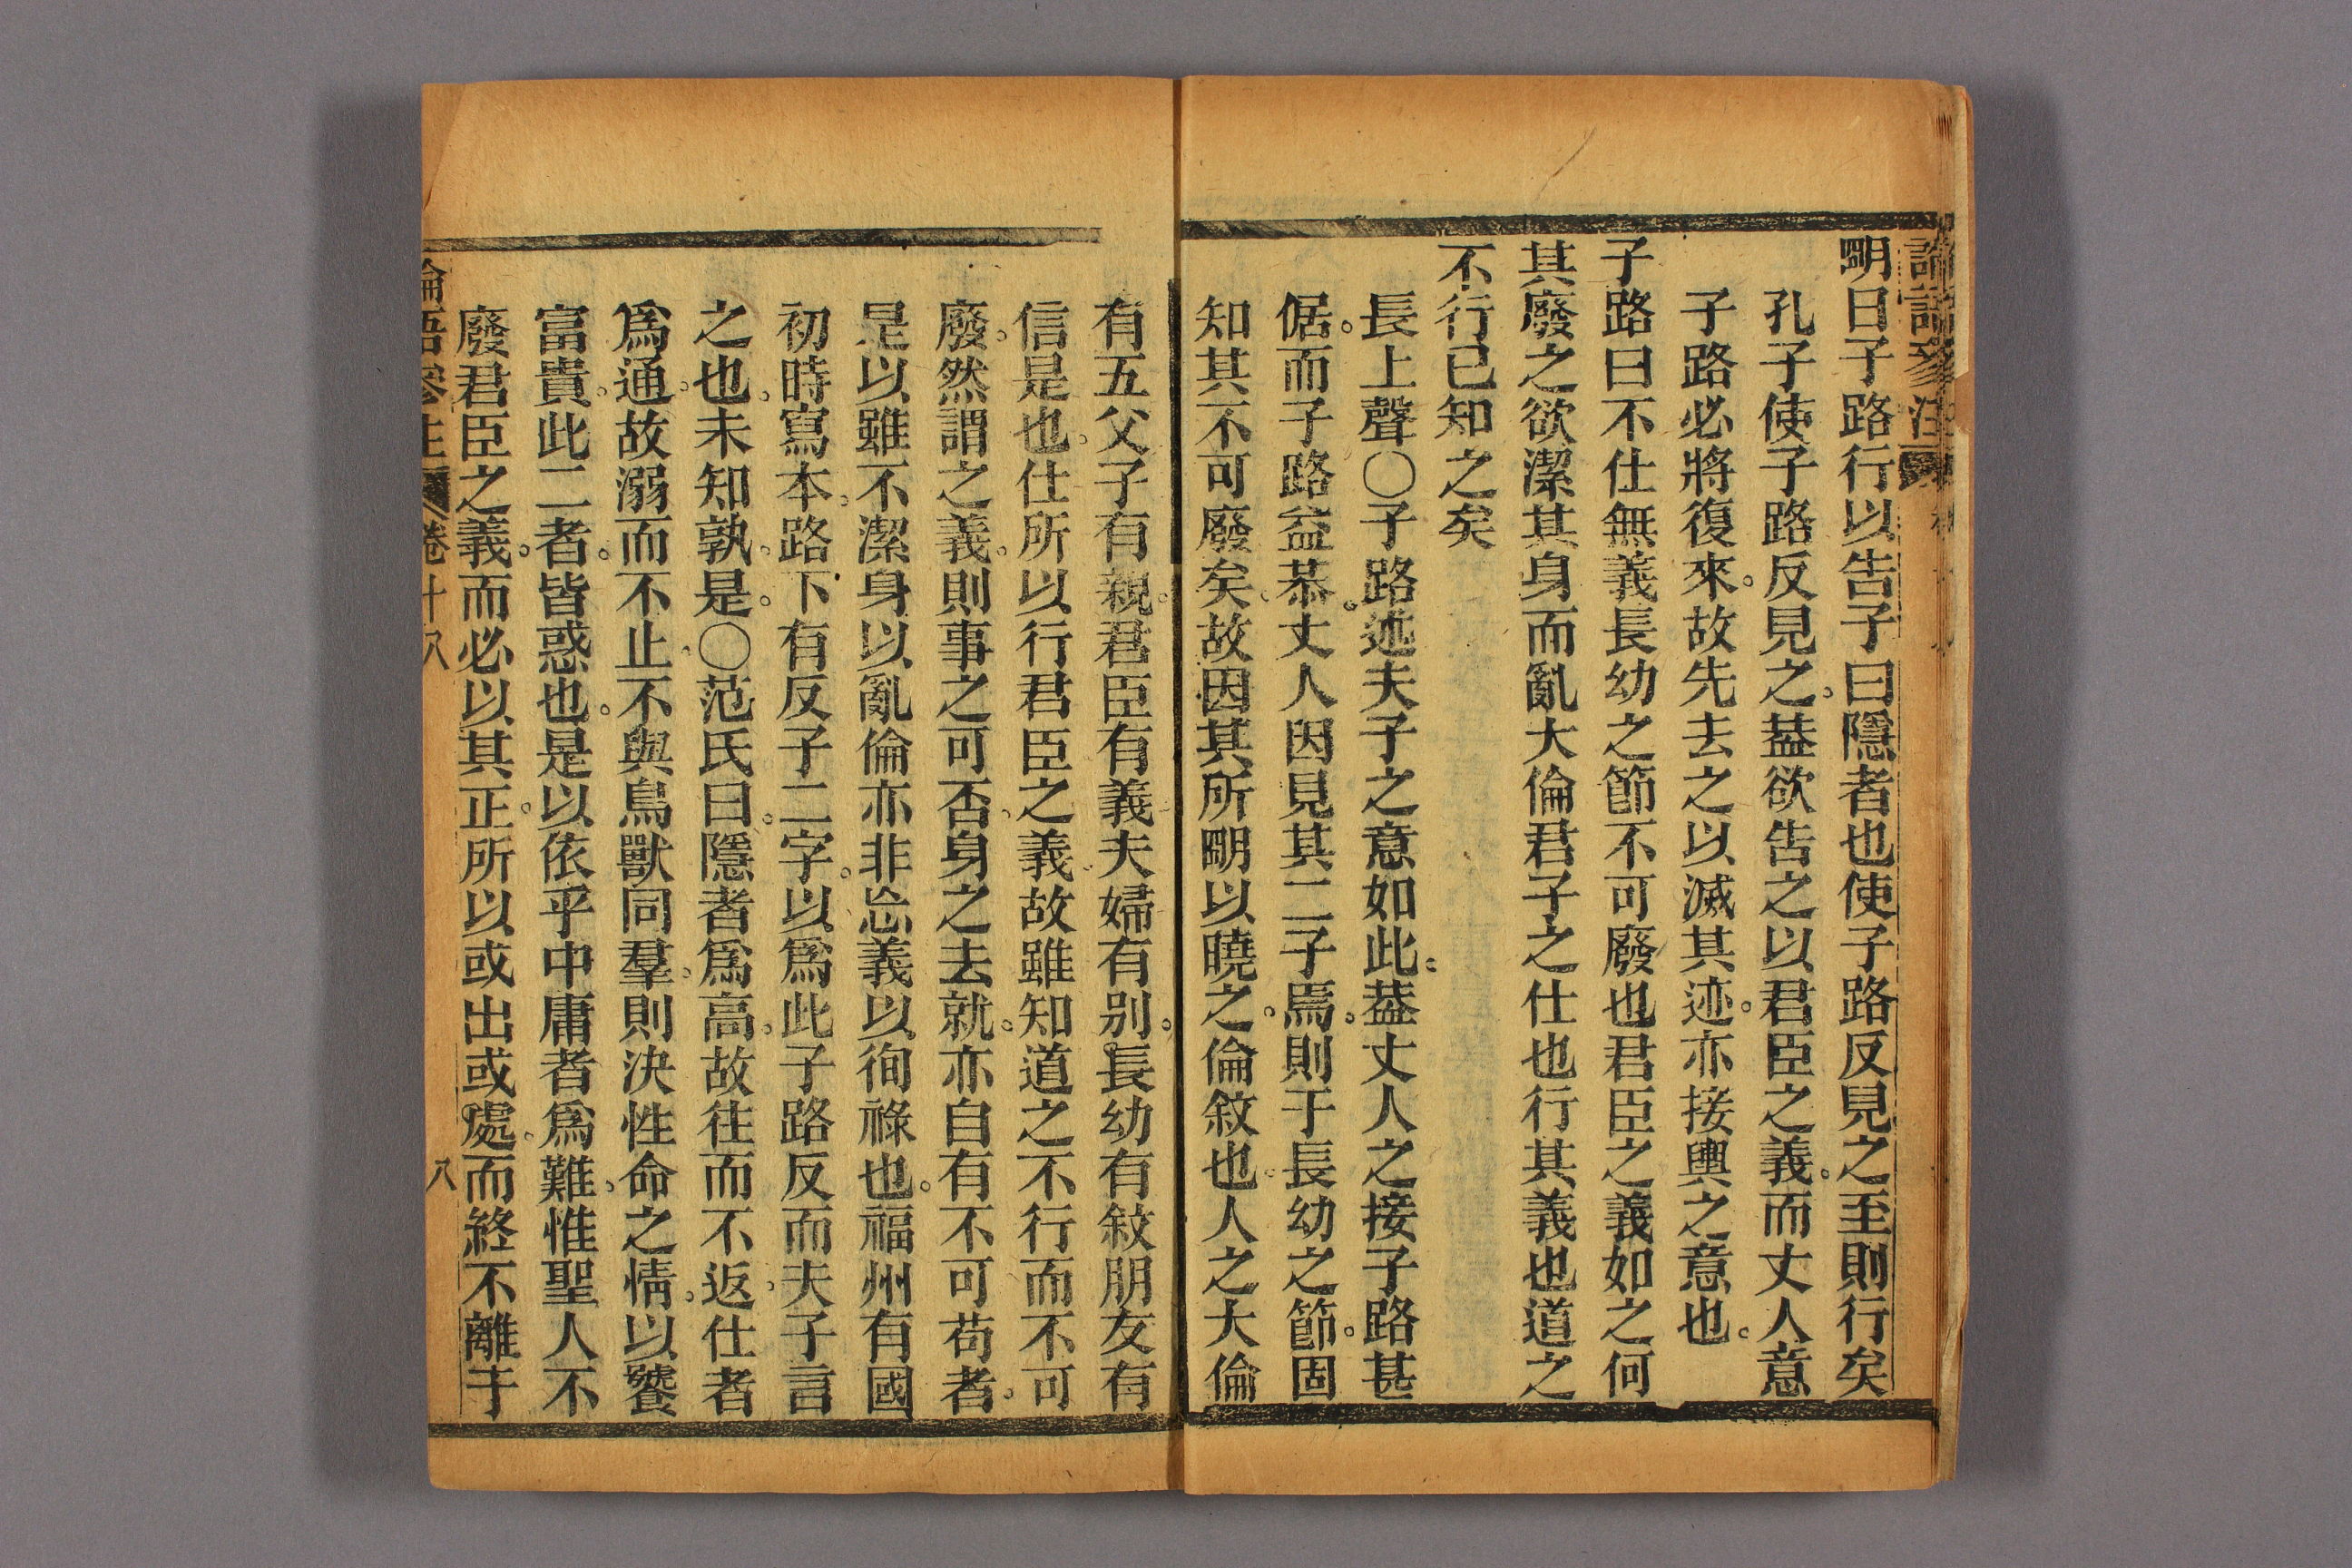 論語參注
明日子路行以告子曰隱者也使子路反見之至則行矣
孔子使子路反見之。葢欲告之以君臣之義。而丈人意
子路必將復來。故先去之以滅其迹。亦接輿之意也。
子路曰不仕無義長幼之節不可廢也君臣之義如之何
其廢之欲潔其身而亂大倫君子之仕也行其義也道之
不行已知之矣
長上聲〇子路述夫子之意如此。葢丈人之接子路甚
倨。而子路益恭。丈人因見其二子焉。則于長幼之節。固
知其不可廢矣。故因其所明以曉之。倫敘也。人之大倫
有五父子有親。君臣有義夫婦有别。長幼有敘朋友有
信是也。仕所以行君臣之義。故雖知道之不行而不可
廢。然謂之義。則事之可否。身之去就。亦自有不可苟者。
是以雖不潔身以亂倫亦非忘義以徇祿也。福州有國
初時寫本。路下有反子二字。以爲此子路反而夫子言
之也。未知孰是。〇范氏曰。隱者爲高。故往而不返。仕者
爲通。故溺而不止。不與鳥獸同羣。則決性命之情。以饕
富貴。此二者。皆惑也。是以依乎中庸者爲難。惟聖人不
廢君臣之義。而必以其正。所以或出或處。而終不離于
論語參注 卷十八 八